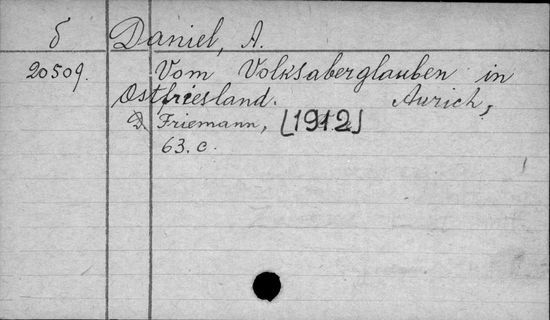 б Daniel, A.
20509. Vom Volksaberglauben in
Ostfriesland. Aurich,
D. Friemann, [1912]
63. c.